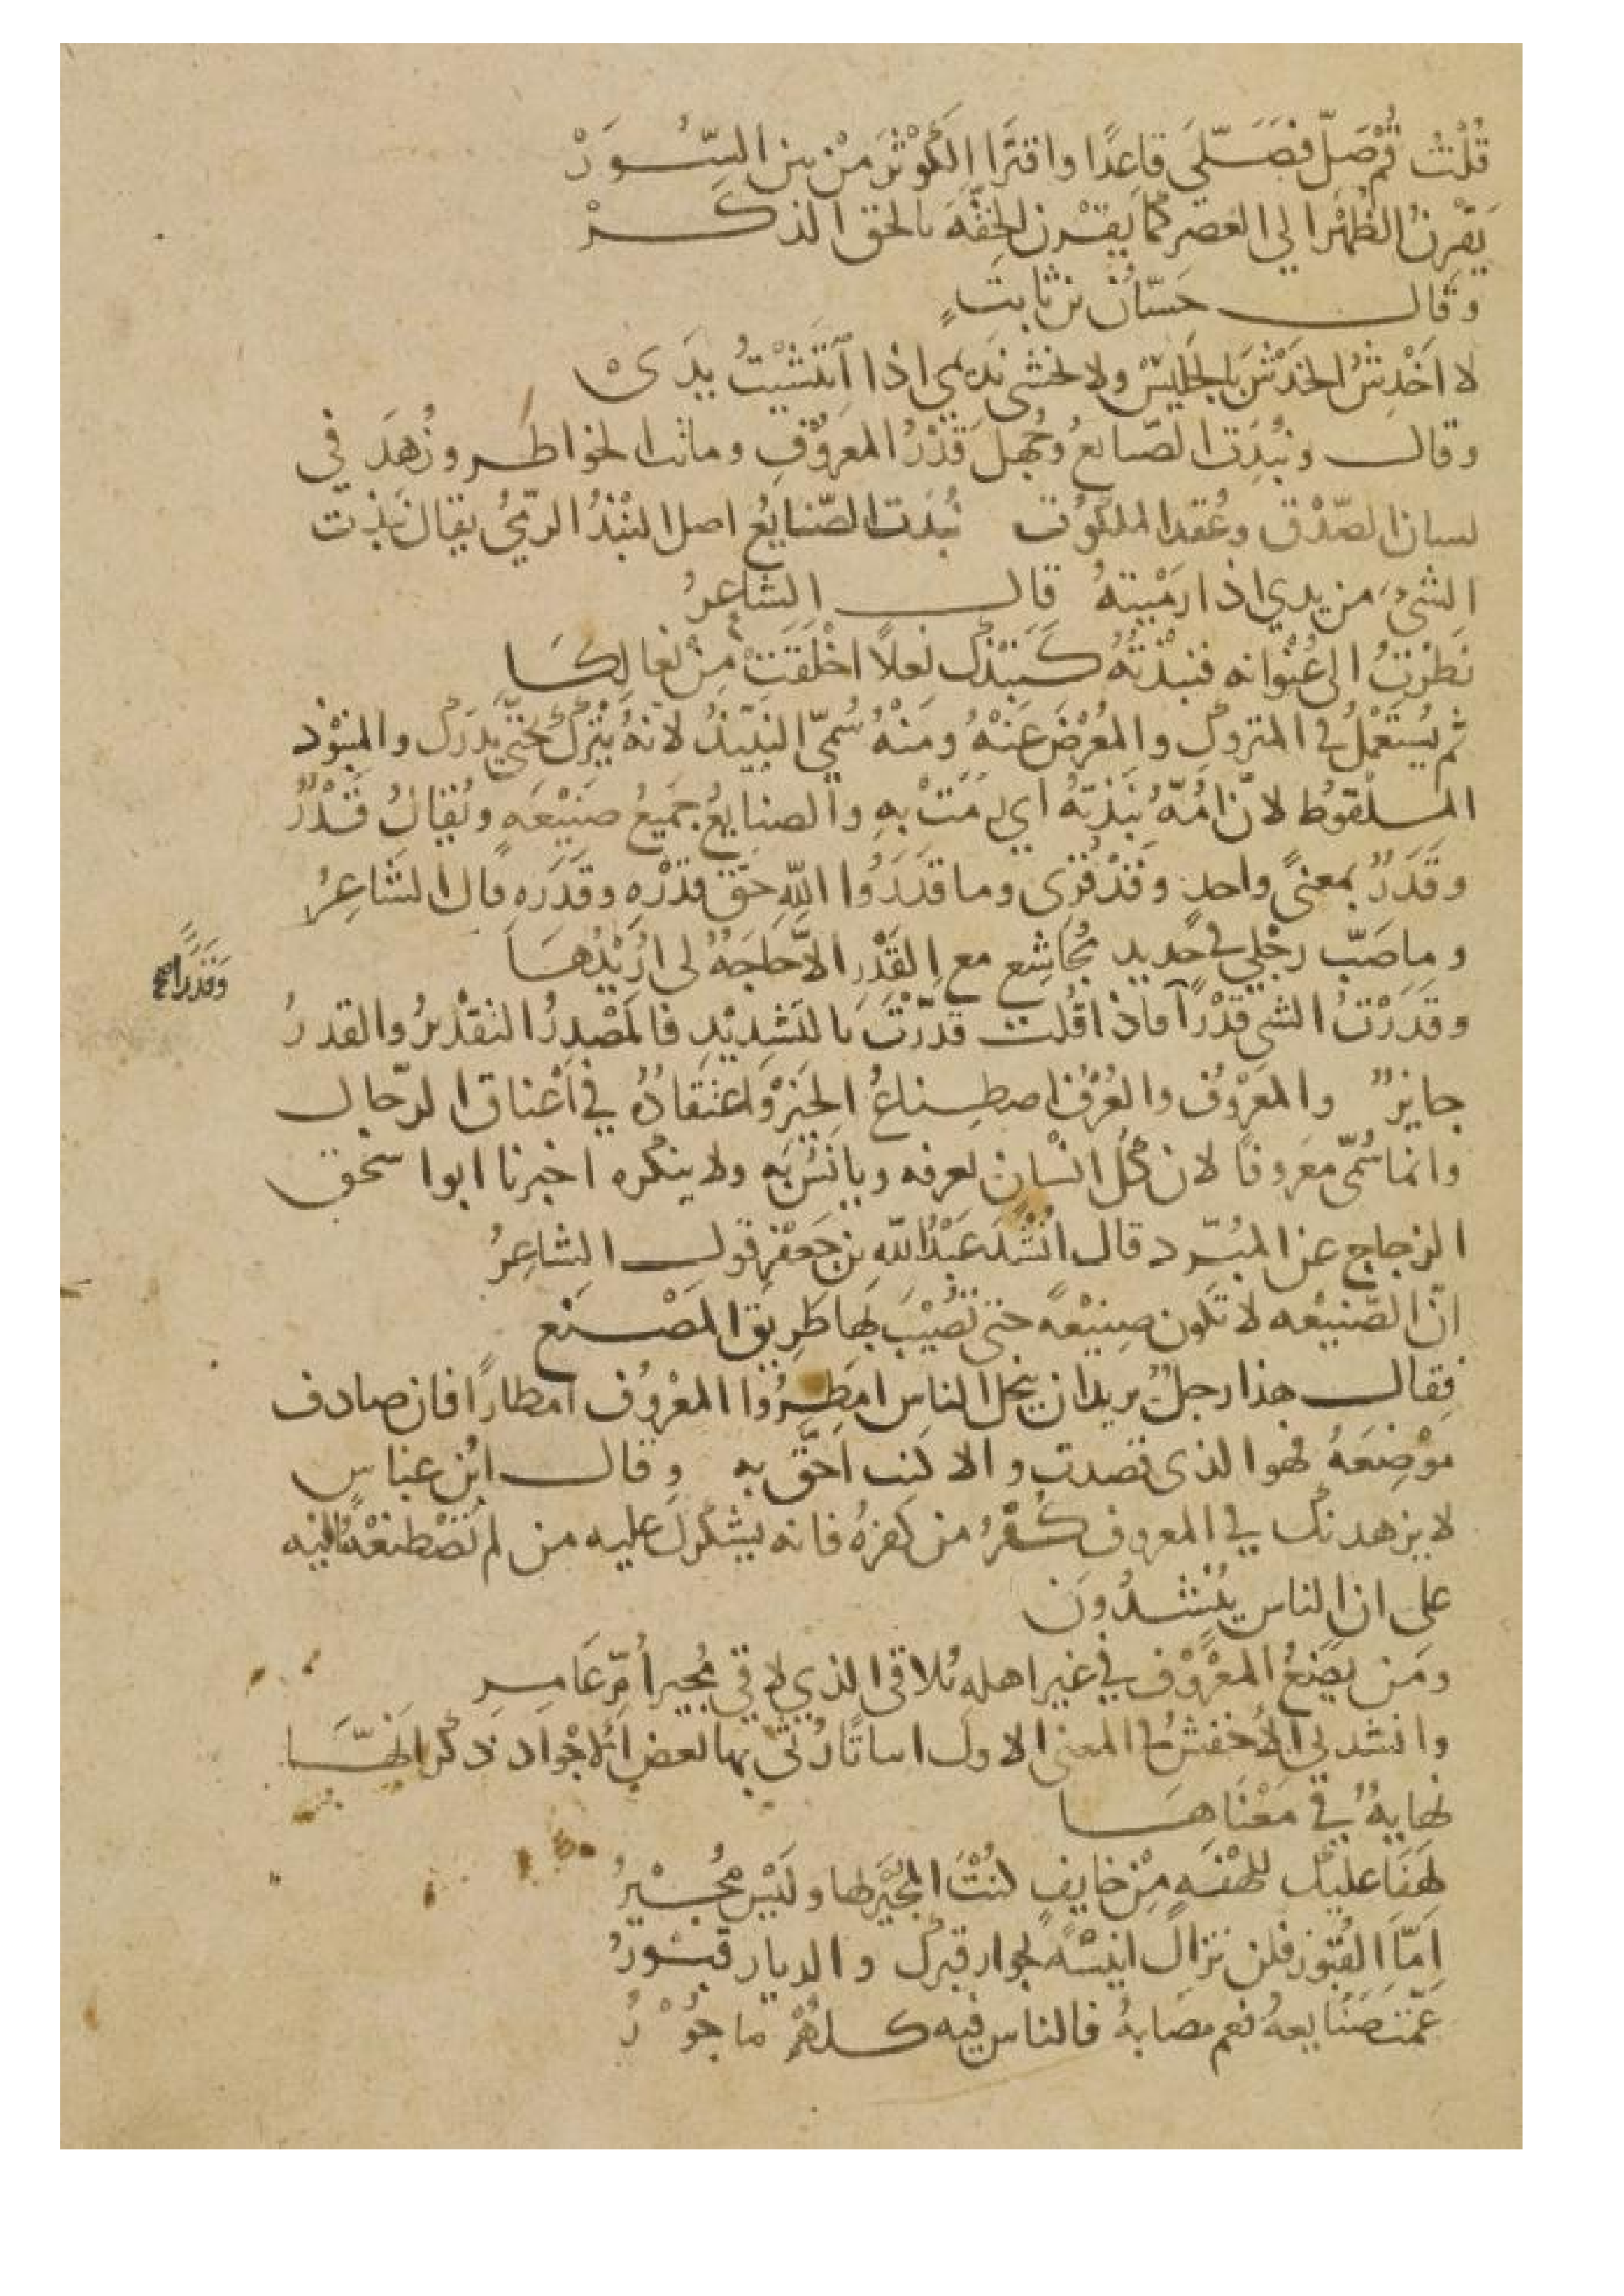 قُلْتُ قُمْ صَلِّ فَصَلَّى قاعِدًا واقترَا الكَوْثَرَ مِنْ بين السُّوَرْ
يَقْرِنُ الظُهْرَ الي العَصْر كما يَقْرن الحِقَّةَ بالحق الذكَرْ
وقال حَسّان بن ثابتٍ
لا اَخْدِشُ الخَدْشَ بالجَلِيسْ ولا يخشى نَدِيمي اذا اَنتَشَيْتُ يَدَىْ
وقال ونُبِذَت الصّنايعُ وجُهِلَ قَدْرُ المَعروُفِ وماتت الخواطر وزُهِدَ في
لسان الصّدْق وعُقد الملكوُت نُبذَت الصّنايعُ اصل النَبْذُ الرّميُ يقال نَبذت
الشئَ من يدي اذا رمَيْتهُ قال الشاعرُ
نَظرْتُ الى عُنْوانه فنبذْتهُ كَنَبْذِكَ نعلاً اخْلَقَتْ مِنْ نِعَالِكَا
ثم يُسْتَعْمَلُ في المتروكِ والمُعْرَضِ عَنْهُ ومِنْهُ سُمّيَ النَبِيْذُ لانهُ يُتْرَكُ حَتّى يُدْرِكَ والمنبوْذ
المَلقوُط لانَّ امُّهُ نَبَذَتهُ اي رمَتْ بهِ والصنايعُ جَمِيعُ صَنِيْعَهٍ ويُقالُ قَدْرٌ
وقَدَرٌ بمعنىً واحدٍ وقَدْ قُرى وما قدَرُوا اللّهَ حَقّ قدْرِهِ وقَدَرِهِ قال الشَاعِرُ
وما صَبّ رِجْلي في حَديد مُجَاشِع مع القَدْرِ الاَّ حاجَهٌ لى اُرِيْدُهَا
وقَدَرْتُ الشي قدْرًا فاذا قُلت قدّرْتُ بالتشدِيْدِ فالمَصْدرُ التقدْيرُ والقدرُ
وقَدَرًا صح
جايزٌ والمَعْروُف والعُرْفُ اصطِناعُ الخَيرْ واعتقادُهُ في اَعْناق الرّجال
وانما سُمّيَ مَعروفًا لان كُلّ انسْان يعرفه ويأنَسُ بَهِ ولا ينكره اخبرنا ابوا سحٰق
الزجاج عن المبُرّد قال انْشَدَ عَبْدُاللّهِ بن جَعْفَرٍ قول الشاعِرُ
انّ الصّنيْعه لا تكون صنيْعةً حتى تُصِيْبَ بَها طَرِيق المَصْنَع
فقال هذا رجلٌ يريد ان يبخل الناس امطِرُوْا المعْروُف امطارًا فان صادف
مَوْضِعَهُ فهوا لذى قصدت والا كنت احَقّ به وقال ابْن عبّاسٍ
لا يزهدنك في المعروف كُفْرُ من كفرهُ فانه يشكرك عليه من لم تَصْطنعْهُ اليه
على ان الناس يُنْشدُوْنَ
ومَن يصْنعُ المَعْروُف في غير اهله تلاقى الذي لاقى مُجِيرُ أُمِّ عَامِرِ
وانشدني الأخفشُ في المعنى الاول ابياتًا رُثى بها بعض الاجْواد ذكر انهَّا
نهايهٌ في مَعْنَاهَا
لَهَفًا عليْك للهْفَهٍ مِنْ خايفٍ كُنْتَ المُجيْرَ لها ولَيْسَ مُجْيِرُ
اَمّا القُبُوُر فلن تزال انيْسَةً بجوار قبْرِك والديار قبُوْرُ
عَمَّت صَنَايعهُ فعم مصابهُ فالناس فيه كلهُمْ ماجُوْرُ